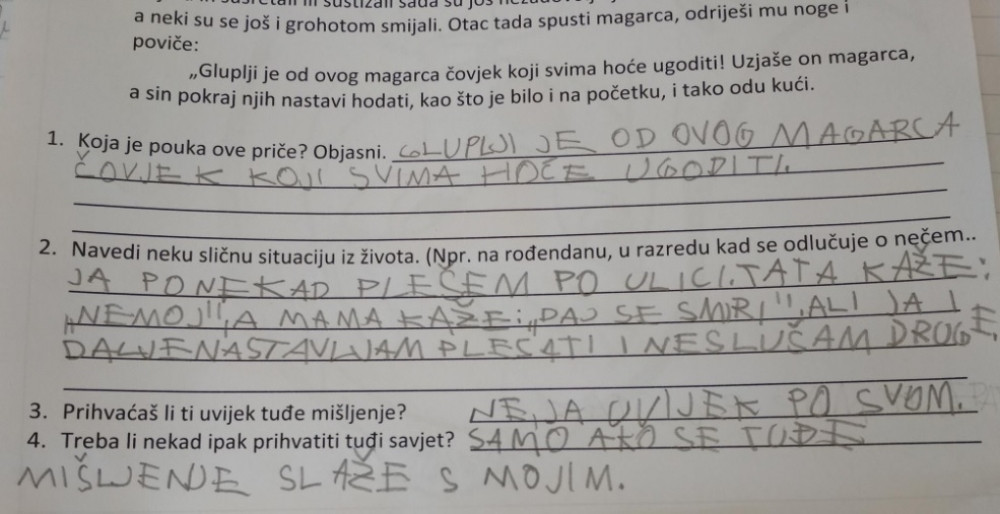 a neki su se još i grohotom smijali. Otac tada spusti magarca, odriješi mu noge i
poviče:
„Gluplji je od ovog magarca čovjek koji svima hoće ugoditi! Uzjaše on magarca,
a sin pokraj njih nastavi hodati, kao što je bilo i na početku, i tako odu kući.
1. Koja je pouka ove priče? Objasni. GLUPLJI JE OD OVOG MAGARCA
ČOVJEK KOJI SVIMA HOĆE UGODITI.
2. Navedi neku sličnu situaciju iz života. (Npr. na rođendanu, u razredu kad se odlučuje o nečem..
JA PONEKAD PLEŠEM PO ULICI. TATA KAŽE:
„NEMOJ", A MAMA KAŽE: „DAJ SE SMIRI", ALI JA I
DALJE NASTAVLJAM PLESATI I NE SLUČAM DRUGE.
3. Prihvaćaš li ti uvijek tuđe mišljenje? NE, JA UVIJEK PO SVOM.
4. Treba li nekad ipak prihvatiti tuđi savjet? SAMO AKO SE TUĐE
MIŠLJENJE SLAŽE S MOJIM.